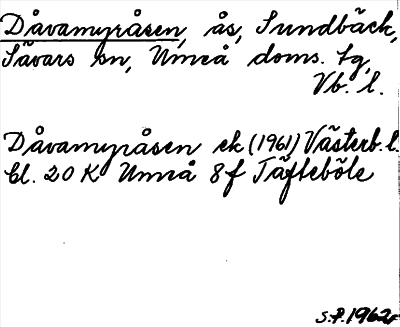 Dåvamyråsen, ås, Sundbäck,
Sävars sn, Umeå doms. tg,
Vb. l.
Dåvamyråsen ek (1961) Västerb. l.
bl. 20 K Umeå 8f Täfteböle
S.P. 1962